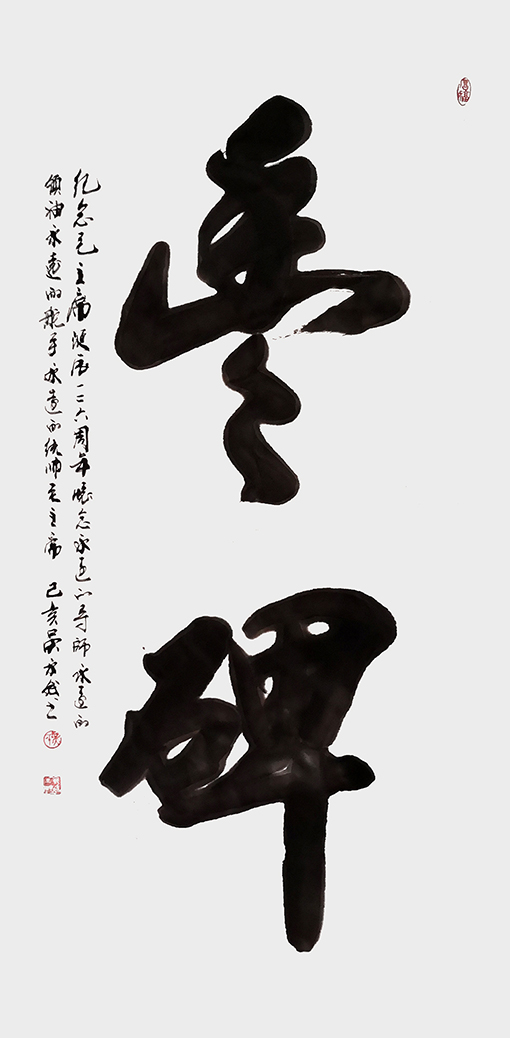 豐碑
纪念毛主席诞辰一二六周年怀念永远的导师永远的
领袖永远的舵手永远的统帅毛主席 己亥吴方武之